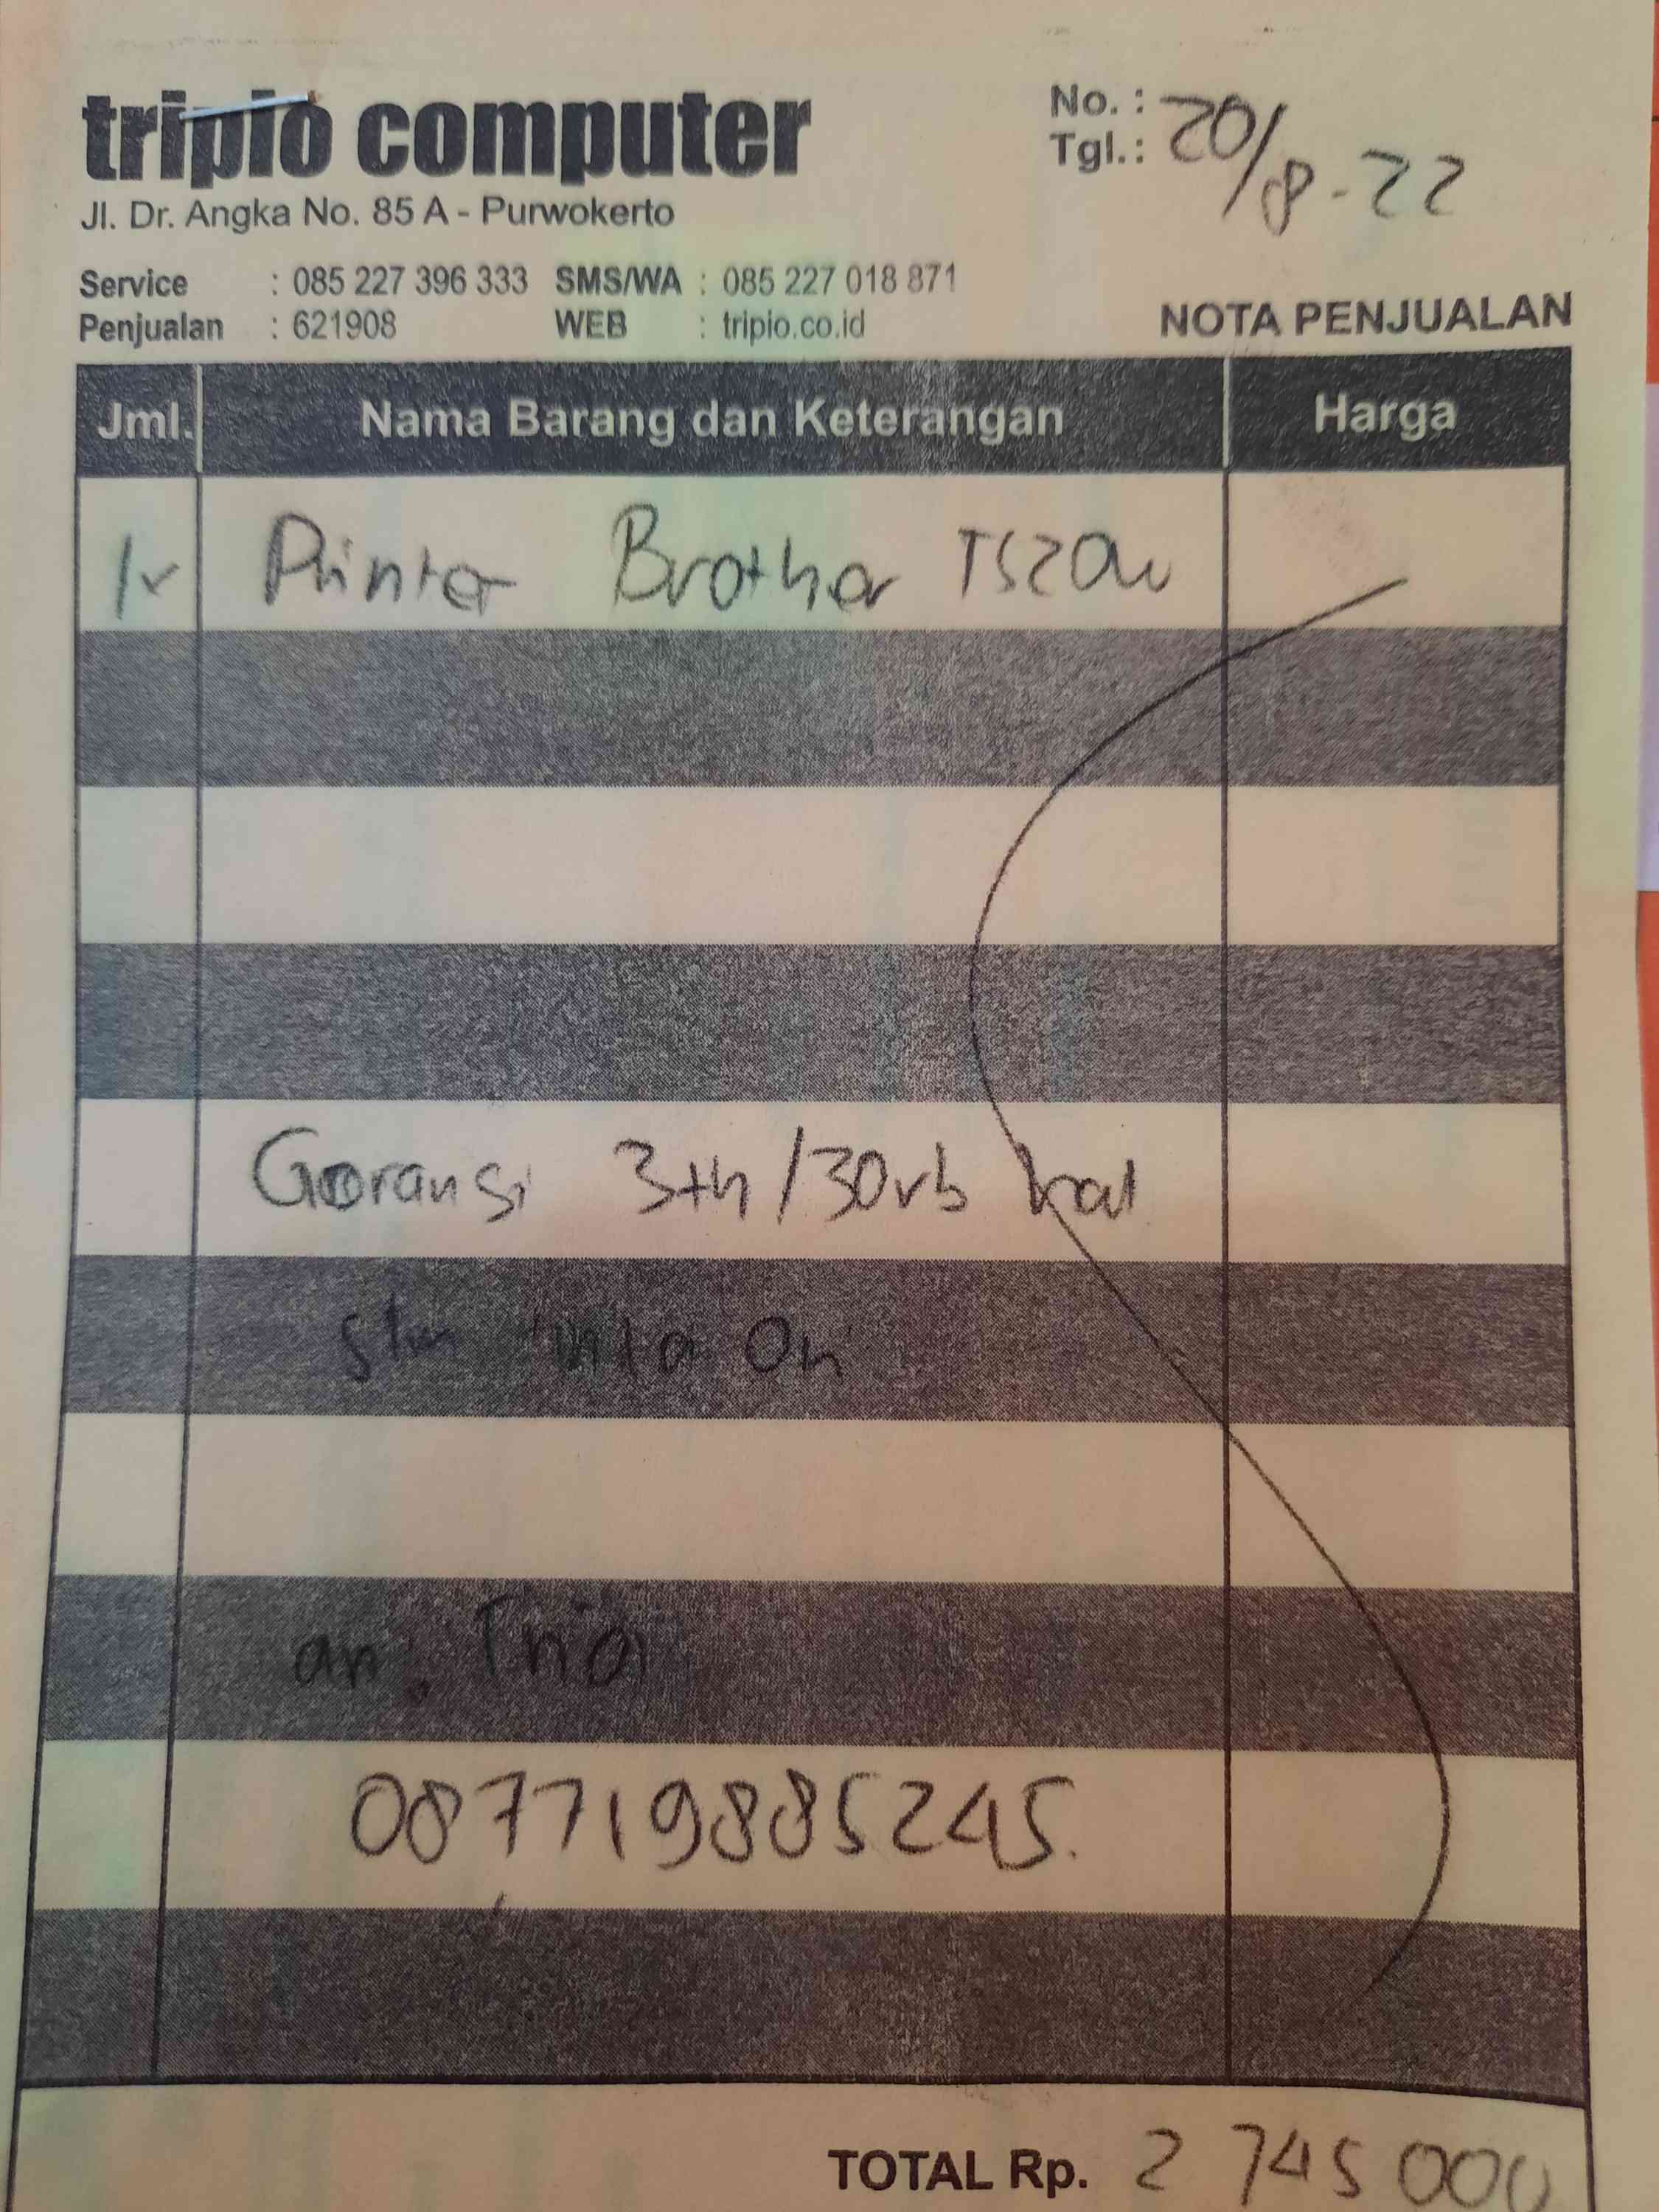 tripio computer
Jl. Dr. Angka No. 85 A - Purwokerto
Service : 085 227 396 333 SMS/WA : 085 227 018 871
Penjualan : 621908 WEB : tripio.co.id
No. :
Tgl.: 20/8-22
NOTA PENJUALAN
Jml. Nama Barang dan Keterangan Harga
1 Printer Brother T520w
Garansi 3th/30rb hal
tinta Ori
an. Tria
087719885245.
TOTAL Rp. 2 745 000